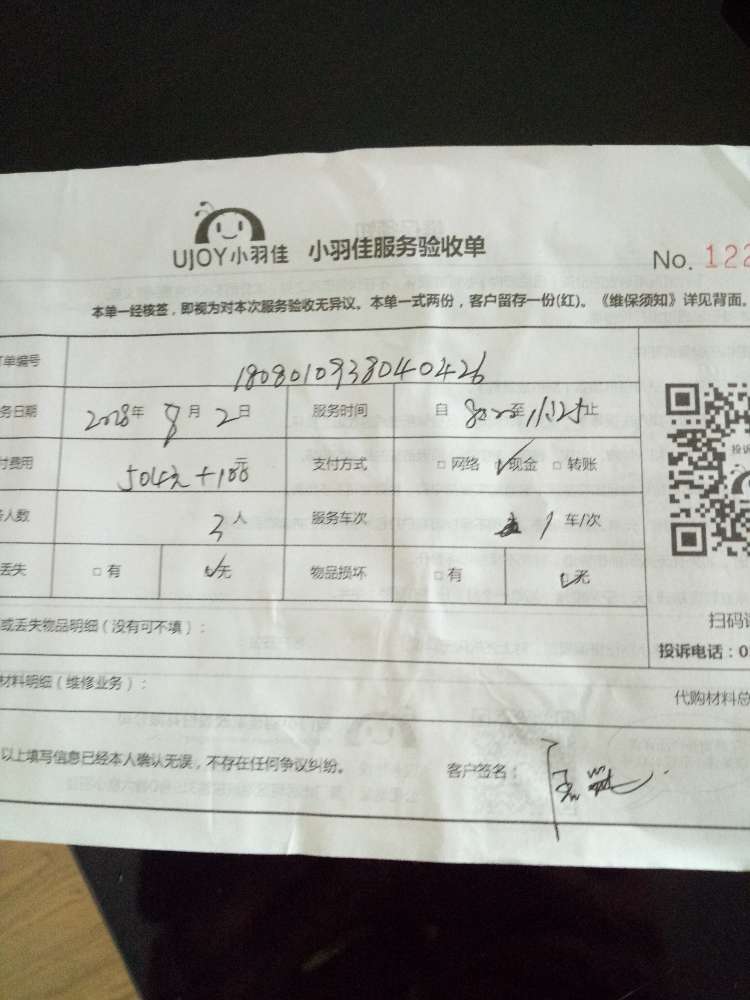 UJOY小羽佳 小羽佳服务验收单
No. 122
本单一经核签，即视为对本次服务验收无异议。本单一式两份，客户留存一份(红)。《维保须知》详见背面。
订单编号 1808010938040426
务日期 2018年 8月 2日 服务时间 自 8:00至11:25止
付费用 504元+100元 支付方式 □网络 ☑现金 □转账
人数 3人 服务车次 1 车/次
丢失 □有 ☑无 物品损坏 □有 ☑无
或丢失物品明细（没有可不填）：
扫码
投诉电话：0
材料明细（维修业务）：
代购材料总
以上填写信息已经本人确认无误，不存在任何争议纠纷。 客户签名：